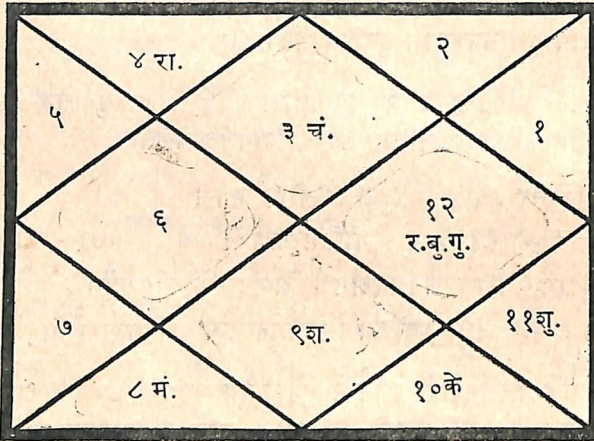 ४ रा.
२
५
३ चं.
१
६
१२
र.बु.गु.
७
९श.
११शु.
८ मं.
१०के